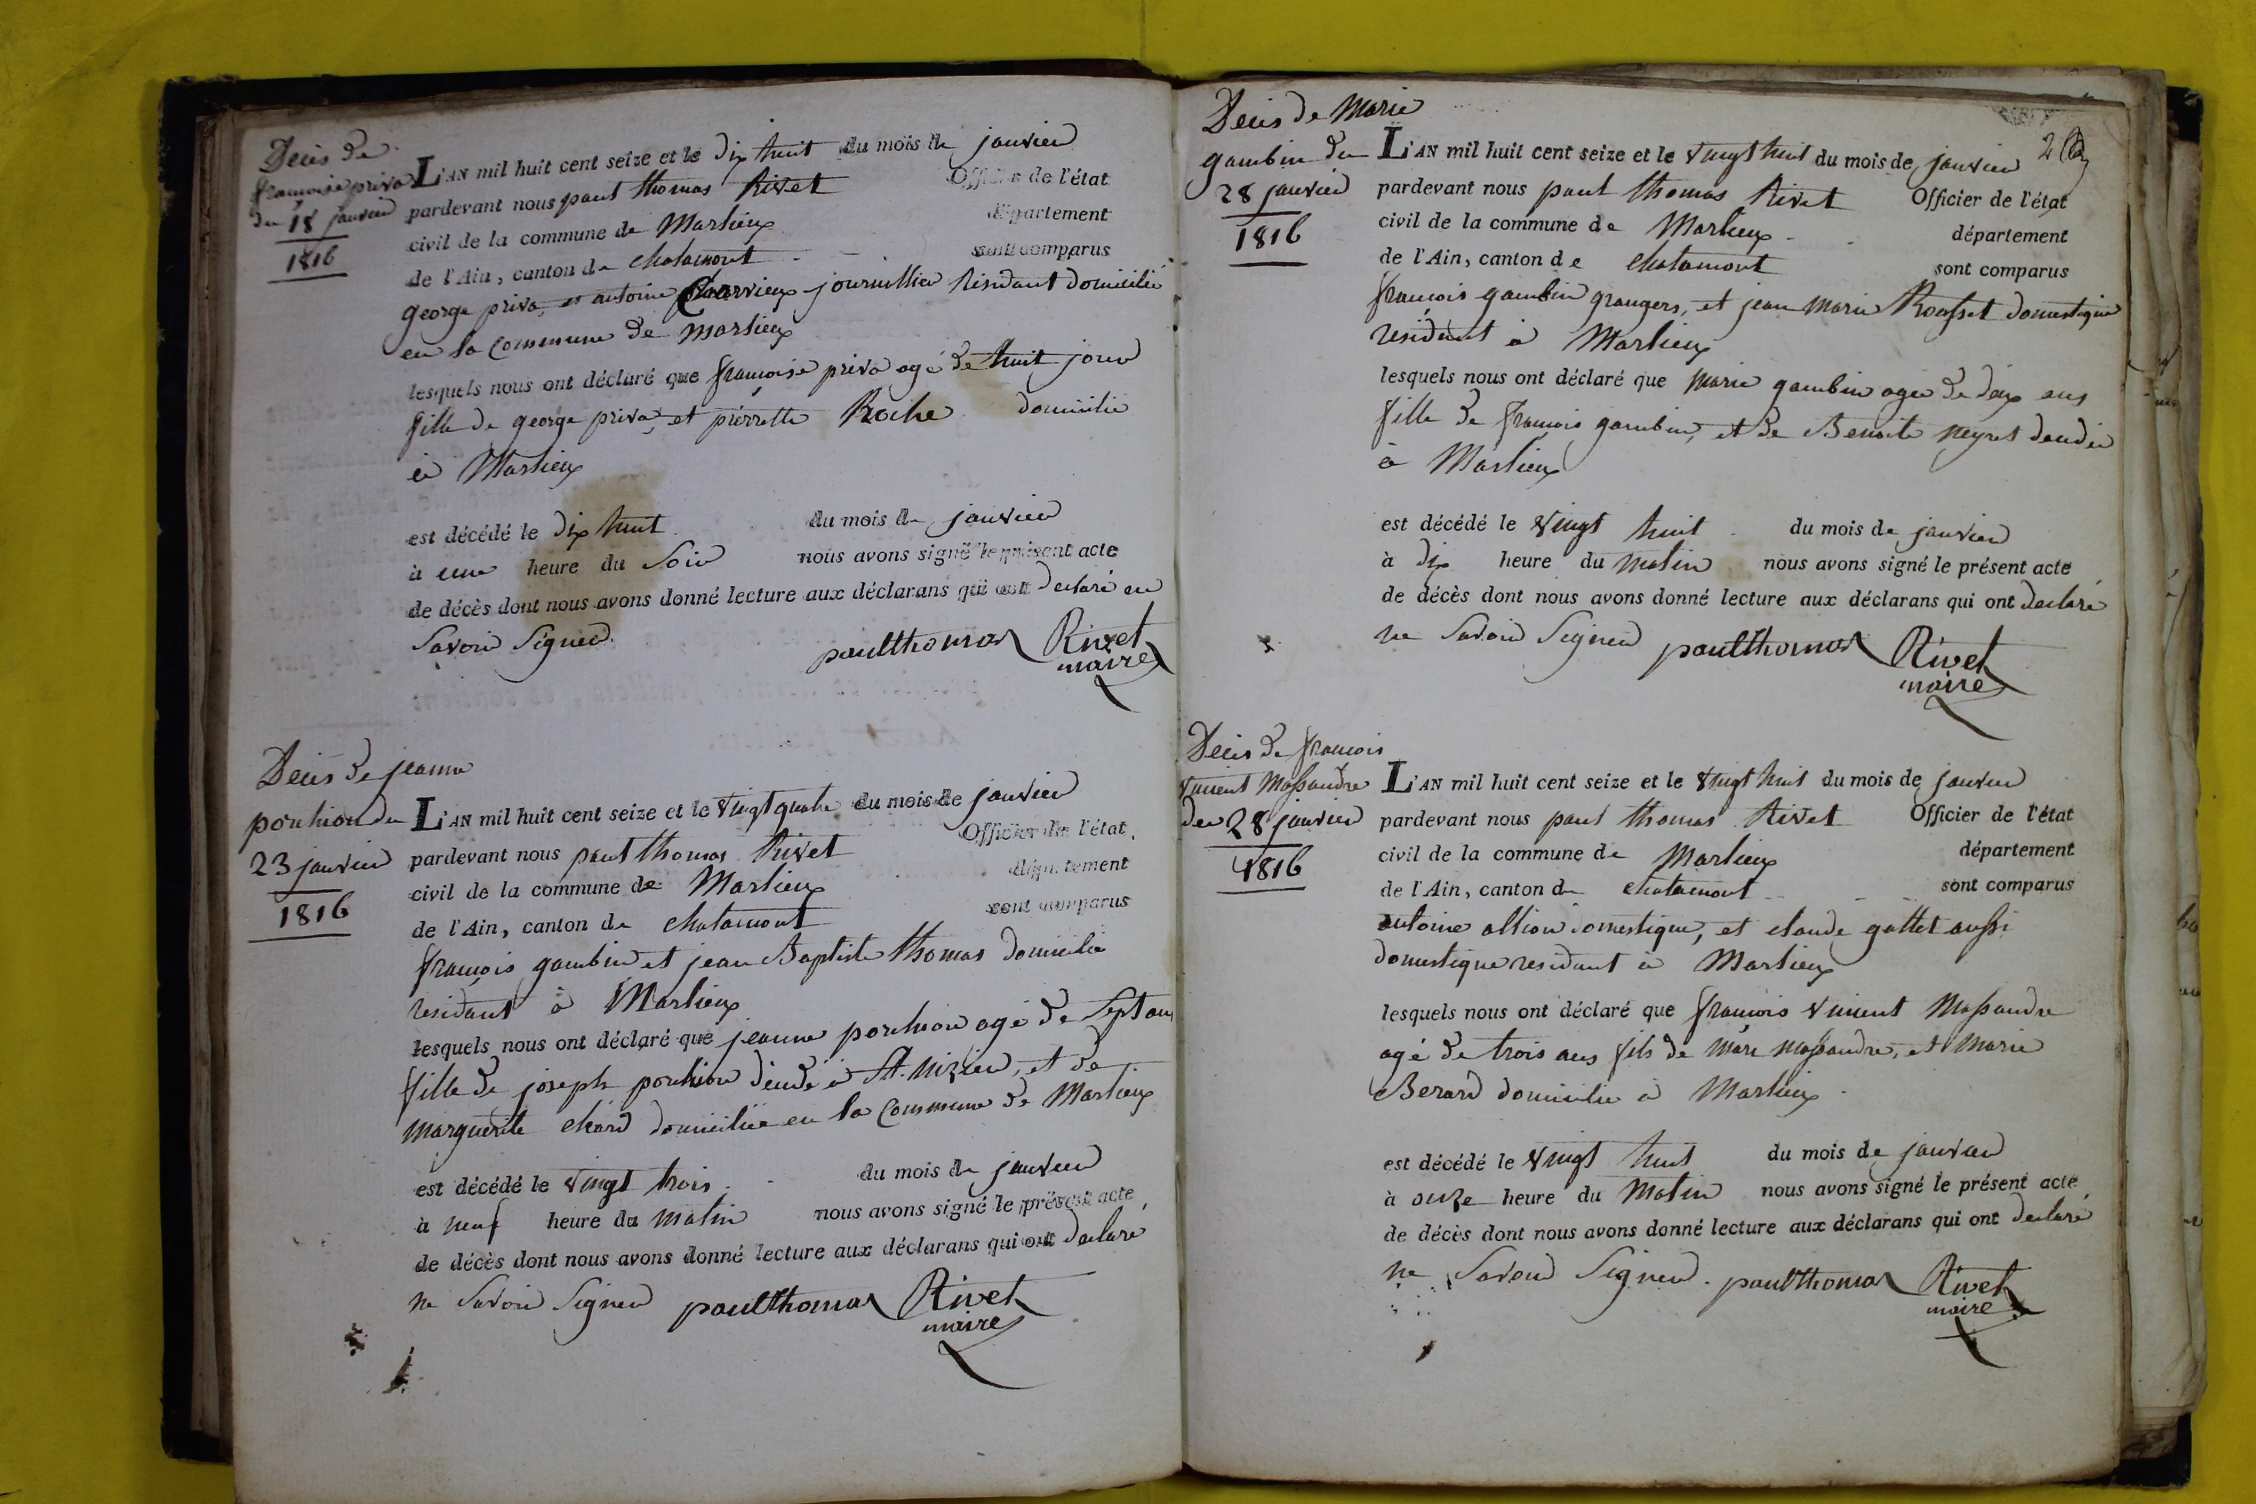 Décès de
françoise priva
du 18 janvier
1816
L'AN mil huit cent seize et le dix huit du mois de janvier
pardevant nous paul thomas Rivet Officier de l'état
civil de la commune de Marlieux département
de l'Ain, canton de chalamont sont comparus
george priva, et antoine Charvieux journillier résidant domicilié
en la commune de Marlieux
lesquels nous ont déclaré que françoise priva agé de huit jour
fille de george priva, et pierrette Roche domicilié
à Marlieux
est décédé le dix huit du mois de janvier
à une heure du Soir nous avons signé le présent acte
de décès dont nous avons donné lecture aux déclarans qui ont declaré en
Savoir Signer.
paulthomas Rivet
maire
Décès de jeanne
ponchion du
23 janvier
1816
L'AN mil huit cent seize et le vingt quatre du mois de janvier
pardevant nous paul thomas Rivet Officier de l'état
civil de la commune de Marlieux département
de l'Ain, canton de chalamont sont comparus
françois gambin et jean Baptiste thomas domicilié
residant à Marlieux
lesquels nous ont déclaré que jeanne ponchion agé de Sept ans
fille de joseph ponchion à St. nizier, et de
marguerite domiciliée en la Commune de Marlieux
est décédé le vingt trois du mois de janvier
à neuf heure du matin nous avons signé le présent acte
de décès dont nous avons donné lecture aux déclarans qui ont declaré
ne Savoir Signer paulthomas Rivet
maire
Décès de Marie
gambin du
28 janvier
1816
L'AN mil huit cent seize et le vingt huit du mois de janvier
pardevant nous paul thomas Rivet Officier de l'état
civil de la commune de Marlieux département
de l'Ain, canton de chalamont sont comparus
françois gambin grangers, et jean marie Rousset domestique
residant à Marlieux
lesquels nous ont déclaré que marie gambin agée de deux ans
fille de françois gambin, et de Benoite neyret
à Marlieux
est décédé le vingt huit du mois de janvier
à dix heure du matin nous avons signé le présent acte
de décès dont nous avons donné lecture aux déclarans qui ont declaré
ne Savoir Signer paulthomas Rivet
maire
Décès de françois
vincent Massandre
du 28 janvier
1816
L'AN mil huit cent seize et le vingt huit du mois de janvier
pardevant nous paul thomas Rivet Officier de l'état
civil de la commune de Marlieux département
de l'Ain, canton de chalamont sont comparus
antoine allion domestique, et claude gottet aussi
domestique residant à Marlieux
lesquels nous ont déclaré que françois vincent Massandre
agé de trois ans fils de marc massandre, et Marie
Berard domicilie à Marlieux
est décédé le vingt huit du mois de janvier
à onze heure du Matin nous avons signé le présent acte
de décès dont nous avons donné lecture aux déclarans qui ont declaré
ne Savoir Signer. paulthomas Rivet
maire